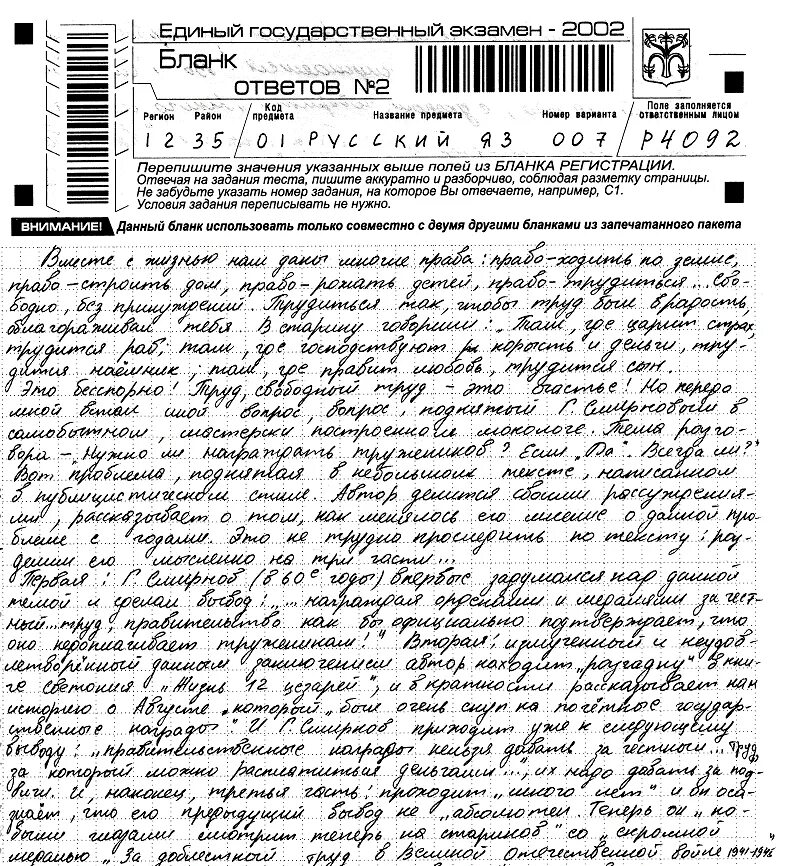 Единый государственный экзамен - 2002
Бланк
ответов №2
Регион Район Код предмета Название предмета Номер варианта Поле заполняется ответственным лицом
12 35 01 РУССКИЙ ЯЗ 007 Р4092
Перепишите значения указанных выше полей из БЛАНКА РЕГИСТРАЦИИ.
Отвечая на задания теста, пишите аккуратно и разборчиво, соблюдая разметку страницы.
Не забудьте указать номер задания, на которое Вы отвечаете, например, С1.
Условия задания переписывать не нужно.
ВНИМАНИЕ! Данный бланк использовать только совместно с двумя другими бланками из запечатанного пакета
Вместе с жизнью нам даны многие права: право-ходить по земле,
право-строить дом, право-рожать детей, право-трудиться... Сво-
бодно, без принуждений. Трудиться так, чтобы труд был в радость,
облагораживал тебя. В старину говорили: „Там, где царит страх,
трудится раб; там, где господствуют корысть и деньги, тру-
дится наёмник; там, где правит любовь, трудится сын.
Это бесспорно! Труд, свободный труд - это счастье! Но передо
мной встал иной вопрос, вопрос, поднятый Г. Смирновым в
самобытном, мастерски построенном монологе. Тема разго-
вора - „Нужно ли награждать тружеников? Если „Да". Всегда ли?"
Вот проблема, поднятая в небольшом тексте, написанном
в публицистическом стиле. Автор делится своими рассуждения-
ми, рассказывает о том, как менялось его мнение о данной про-
блеме с годами. Это не трудно проследить по тексту: раз-
делим его мысленно на три части...
Первая: Г. Смирнов (в 60е годы) впервые задумался над данной
темой и сделал вывод: „...награждая орденами и медалями за чест-
ный... труд, правительство как бы официально подтверждает, что
оно недоплачивает труженикам!" Вторая: измученный и неудов-
летворённый данным заключением автор находит „разгадку" в кни-
ге Светония „Жизнь 12 цезарей", и в кратности рассказывает нам
историю о Августе „который" был очень скуп на почётные государ-
ственные награды". И Г. Смирнов приходит уже к следующему
выводу: „правительственные награды нельзя давать за честный... труд,
за который можно расплатиться деньгами...", их надо давать за под-
виги. И, наконец, третья часть: проходит „много лет" и он осо-
знаёт, что его предыдущий вывод не „абсолютен. Теперь он „но-
выми глазами смотрит теперь на стариков" со „скромной
медалью „За доблестный труд в Великой Отечественной войне 1941-1945"